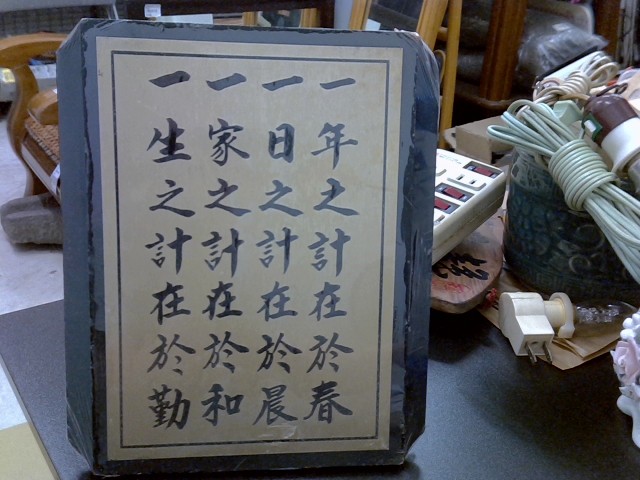 一年之計在於春
一日之計在於晨
一家之計在於和
一生之計在於勤